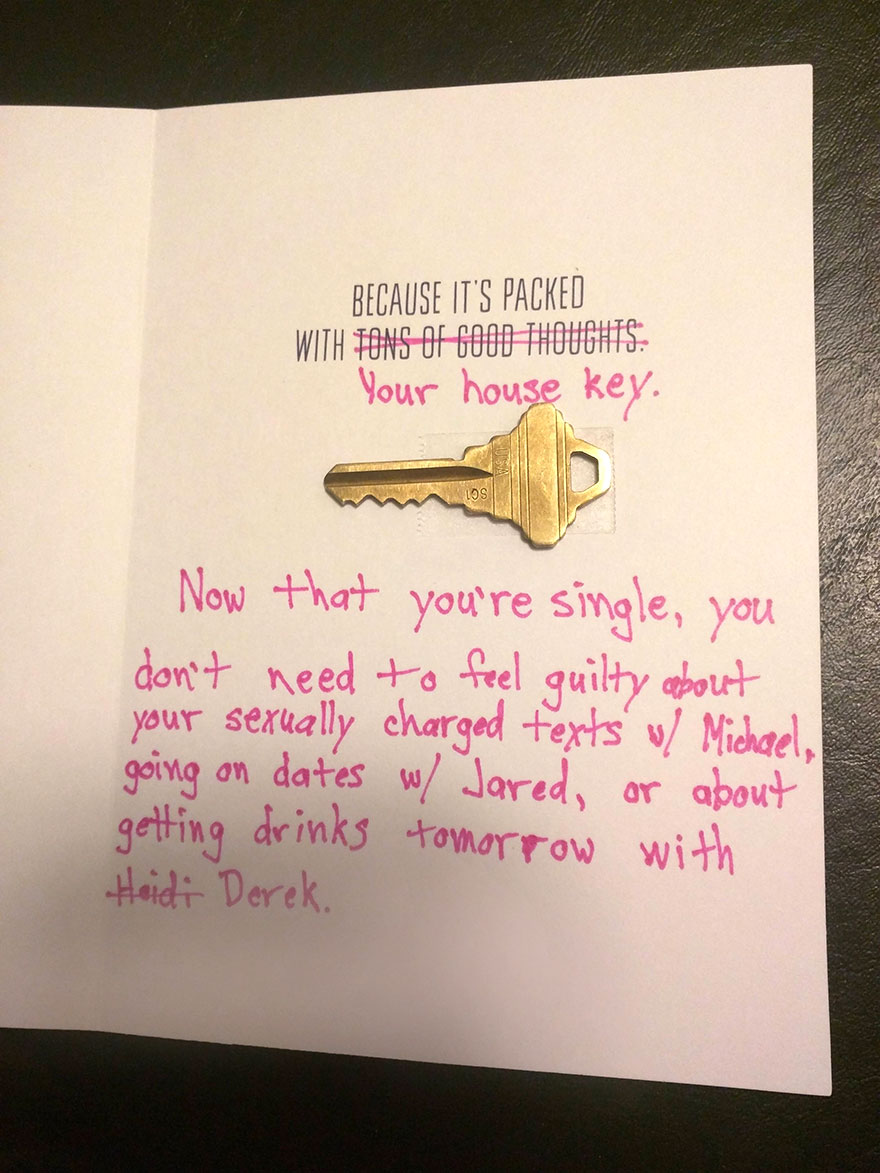 BECAUSE IT'S PACKED
WITH TONS OF GOOD THOUGHTS.
Your house key.
USA
SC1
Now that you're single, you
don't need to feel guilty about
your sexually charged texts w/ Michael,
going on dates w/ Jared, or about
getting drinks tomorrow with
Heidi Derek.